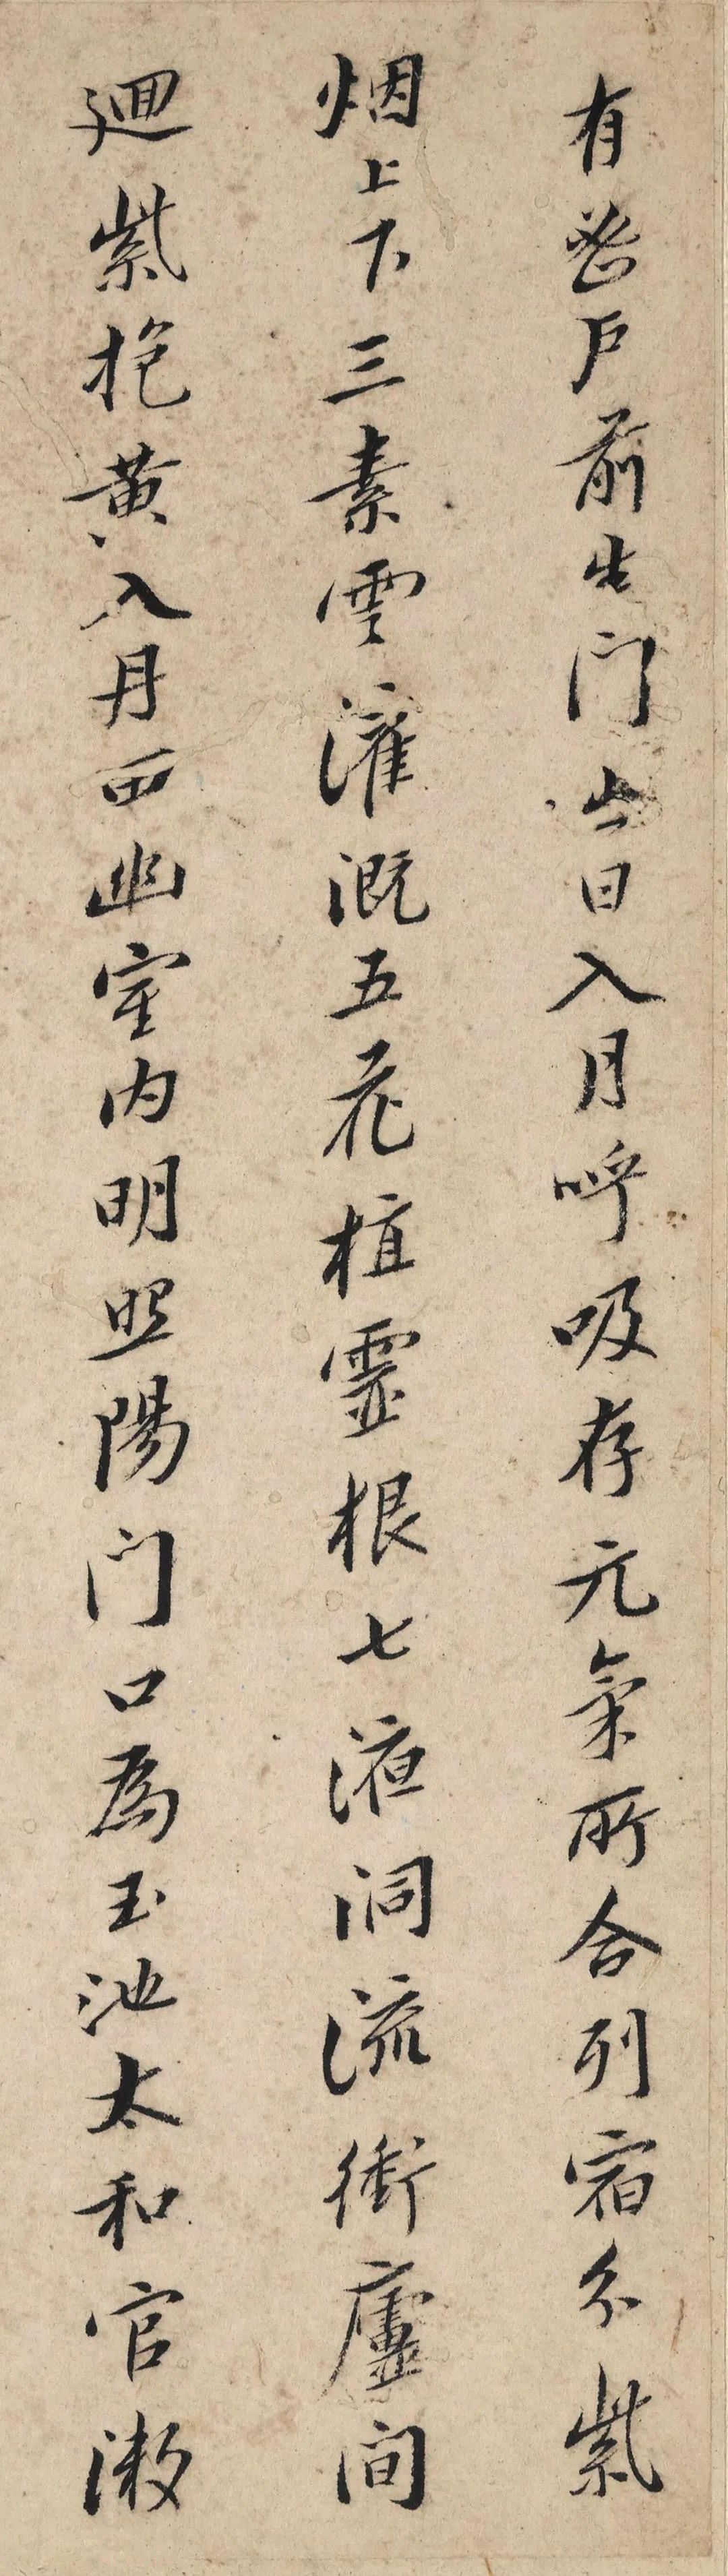 有密戶前生門出日入月呼吸存元氣所合列宿分紫
烟上下三素雲灌溉五花植靈根七液洞流衝廬間
迴紫抱黄入丹田幽室内明照陽門口為玉池太和官漱